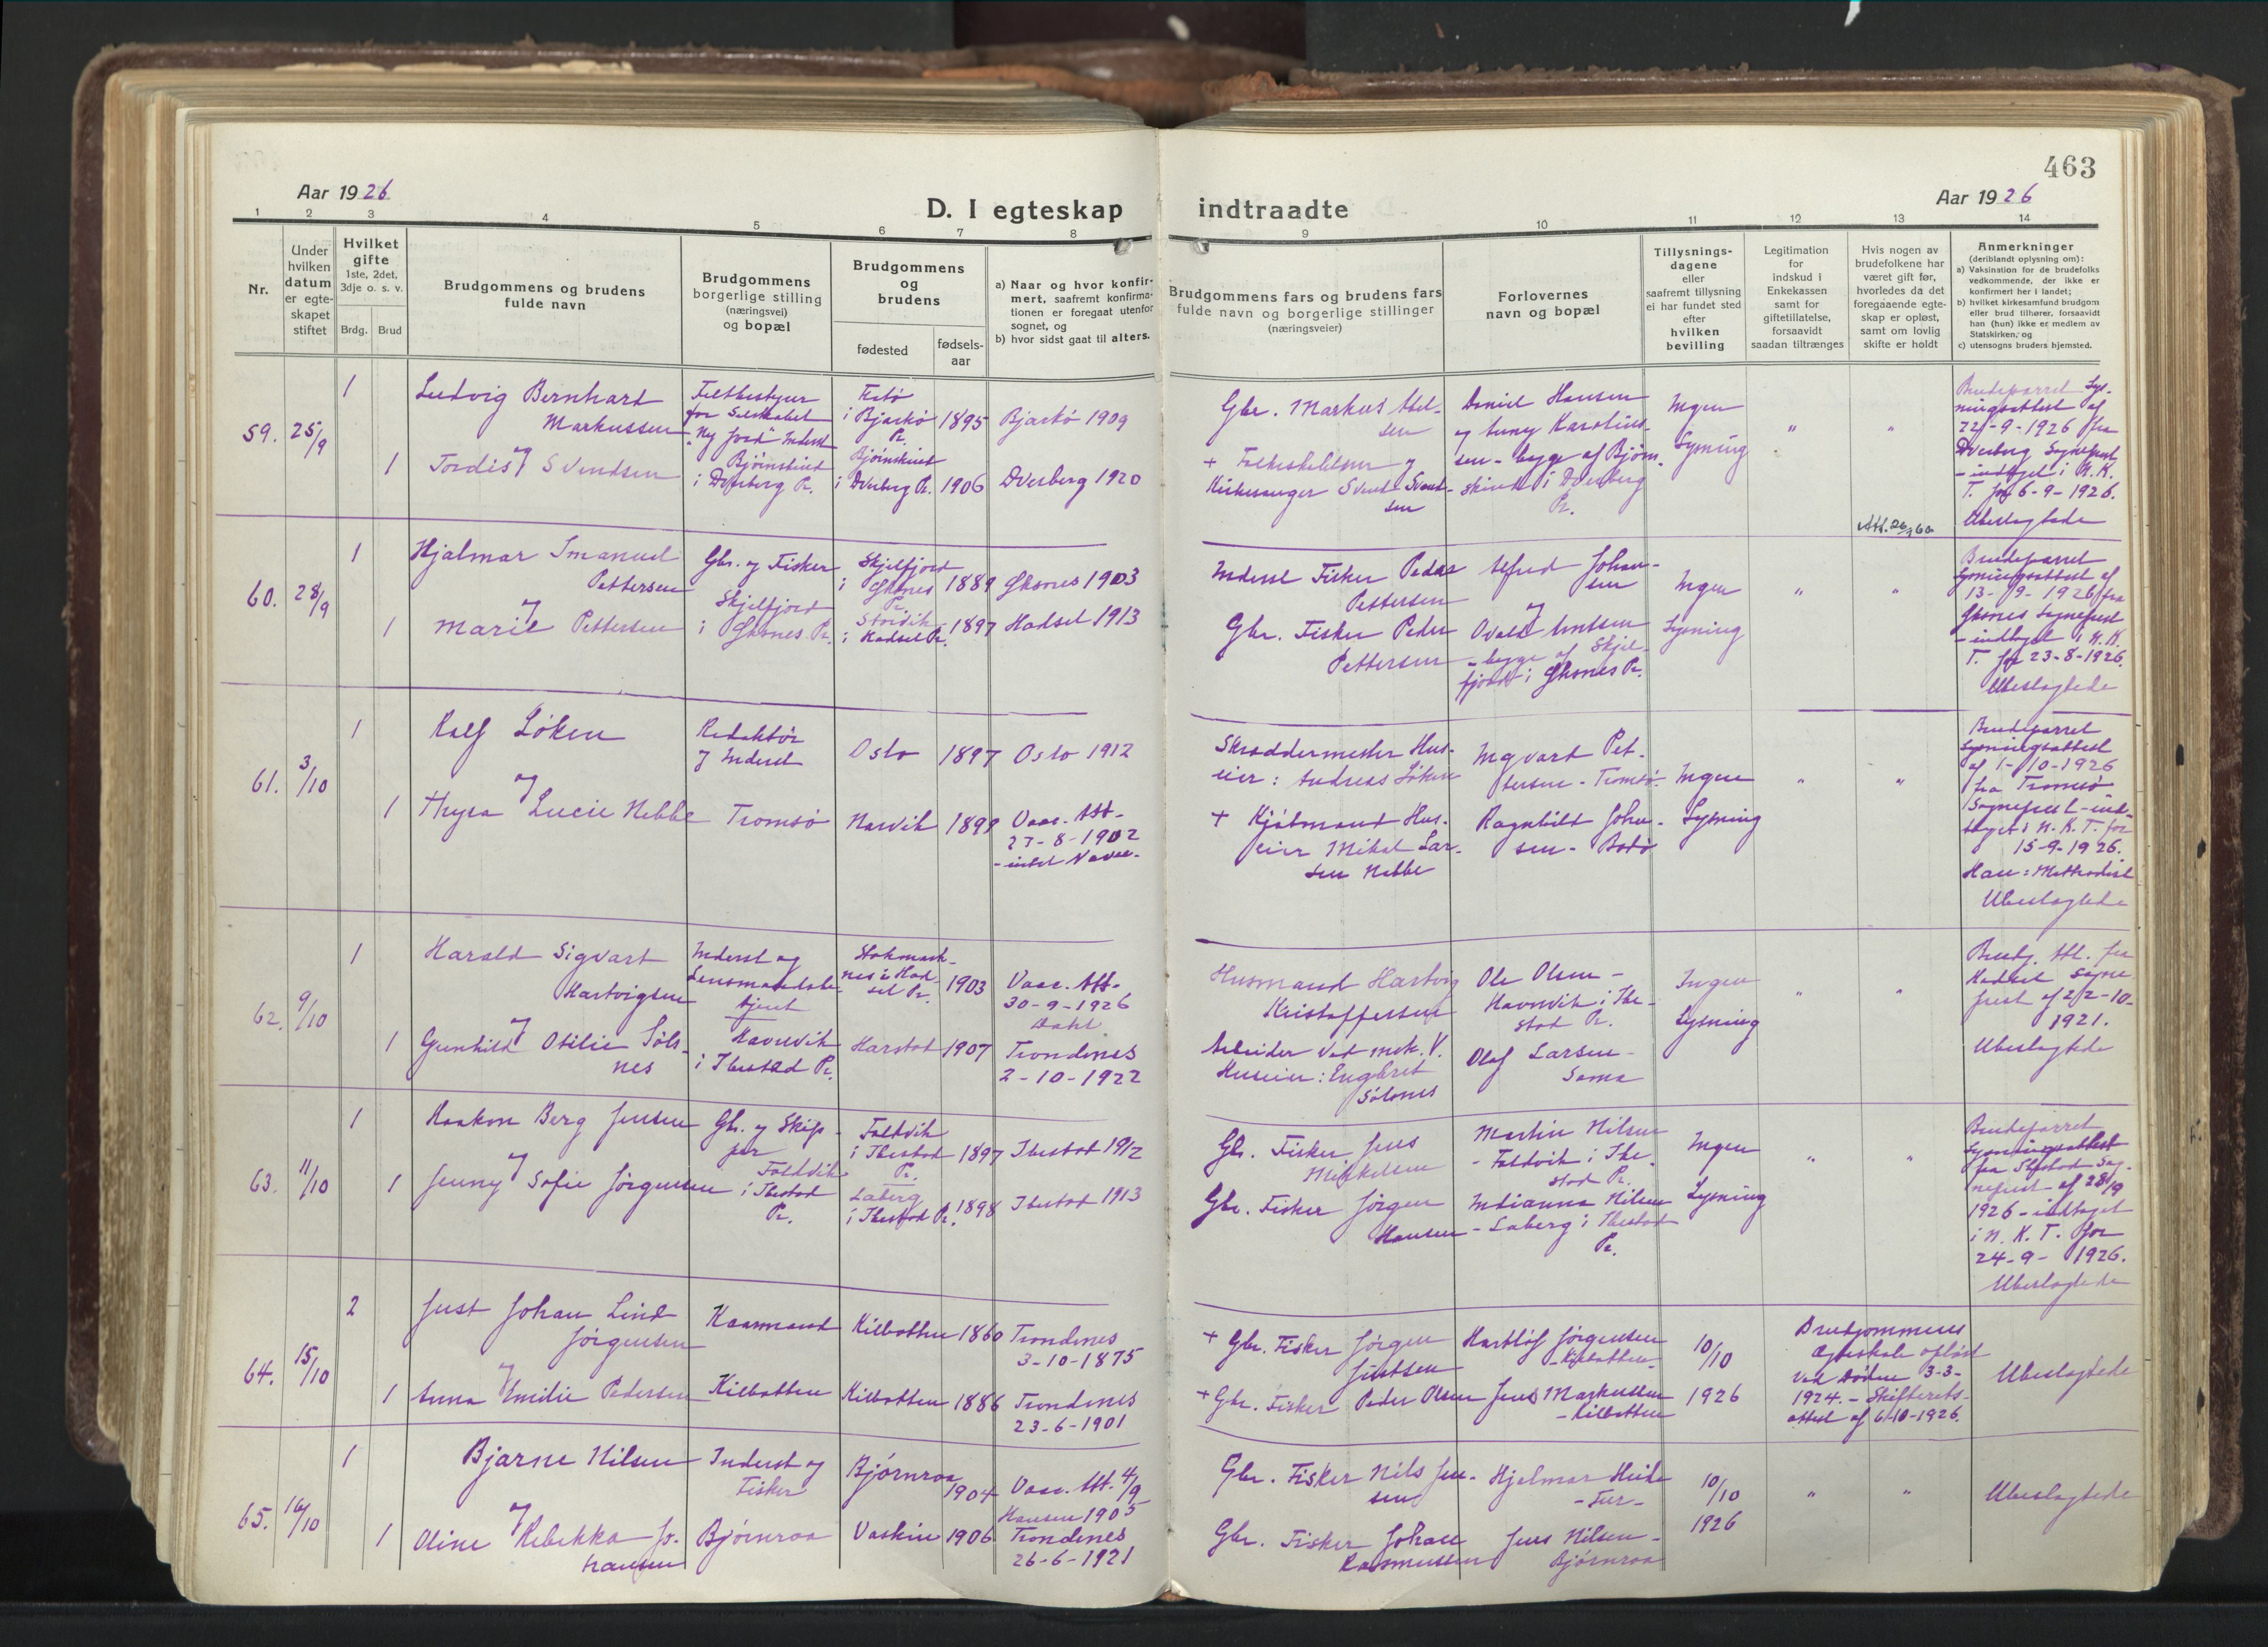 463
Aar 1926
D. I egteskap indtraadte
Aar 1926
1 2 3 4 5 6 7 8 9 10 11 12 13 14
Nr.
Under
hvilken
datum
er egte-
skapet
stiftet
Hvilket
gifte
1ste, 2det,
3dje o. s. v.
Brdg. Brud
Brudgommens og brudens
fulde navn
Brudgommens
borgerlige stilling
(næringsvei)
og bopæl
Brudgommens
og
brudens
fødested
fødsels-
aar
a) Naar og hvor konfir-
mert, saafremt konfirma-
tionen er foregaat utenfor
sognet, og
b) hvor sidst gaat til alters.
Brudgommens fars og brudens fars
fulde navn og borgerlige stillinger
(næringsveier)
Forlovernes
navn og bopæl
Tillysnings-
dagene
eller
saafremt tillysning
ei har fundet sted
efter
hvilken
bevilling
Legitimation
for
indskud i
Enkekassen
samt for
giftetillatelse,
forsaavidt
saadan tiltrænges
Hvis nogen av
brudefolkene har
været gift før,
hvorledes da det
foregaaende egte-
skap er opløst,
samt om lovlig
skifte er holdt
Anmerkninger
(deriblandt oplysning om):
a) Vaksination for de brudefolks
vedkommende, der ikke er
konfirmert her i landet;
b) hvilket kirkesamfund brudgom
eller brud tilhører, forsaavidt
han (hun) ikke er medlem av
Statskirken, og
c) utensogns bruders hjemsted.
59. 25/9
1
Ludvig Bernhart
Markussen
og
1 Tordis Svendsen
Feltbestyrer
for Selskabet
"Ny Jord" Inderst
Bjørnskind
i Dverberg Pr.
i Bjarkø
Pr.
1895
Bjarkø 1909
Bjørnskind
i Dverberg Pr. 1906
Dverberg 1920
Gbr. Markus Abel-
sen
+ Folkeskolelærer og
Kirkesanger Svend Svend-
sen
Daniel Hansen
og Karolius-
sen - begge af Bjørn-
skind i Dverberg
Pr.
Ingen
Lysning
" "
Brudeparret Lys-
ningsattest af
22-9-1926 fra
Dverberg Sogneprest
- indtaget i N. K.
T. for 6-9-1926.
Ubeslægtede
60. 28/9
1
Hjalmar Imanuel
Pettersen
og
1 Marie Pettersen
Gbr. og Fisker
Skjelfjord
i Øksnes Pr.
Skjelfjord
i Øksnes
Pr.
1889
Øksnes 1903
i Hadsel Pr. 1897
Hadsel 1913
Inderst Fisker Peder
Pettersen
Gbr. Fisker Peder
Pettersen
Alfred Johan-
sen
og
- begge af Skjel-
fjord i Øksnes Pr.
Ingen
Lysning
" "
Brudeparret
Lysningsattest af
13-9-1926 fra
Øksnes Sogneprest
- indtaget i N. K.
T. for 23-8-1926.
Ubeslægtede
61. 3/10
1
Ralf Løken
og
1 Thyra Lucie Nebbe
Redaktør
og Inderst
Tromsø
Oslo 1897 Oslo 1912
Narvik 1899
Vacc. Att.
27-8-1902
Skræddermester Hus-
eier: Andreas Løken
+ Kjøbmand Hus-
eier Mikal Lar-
sen Nebbe
Ingvart Pet-
tersen - Tromsø.
Ragnhild Johan-
sen - Bodø
Ingen
Lysning
" "
Brudeparret
Lysningsattest
af 1-10-1926
fra Tromsø
Sogneprest - ind-
taget i N. K. T. for
15-9-1926.
Han: Methodist
Ubeslægtede
62. 9/10
1
Harald Sigvart
Hartvigsen
og
1 Gunhild Otilie Søls-
nes
Inderst og
Lensmandsbe-
tjent
Havnvik
i Ibestad Pr.
Stokmark-
nes i Had-
sel Pr.
1903
Vacc. Att.
30-9-1926
Dahl
Harstad 1907
Trondenes
2-10-1922
Husmand Hartvig
Kristoffersen
Arbeider ved mek. V.
Huseier: Engbret
Sølsnes
Ole Olsen -
Havnvik i Ibe-
stad Pr.
Olaf Larsen -
Sama
Ingen
Lysning
" "
Brudg. Att. fra
Hadsel Sogne-
prest af 22-10-
1921.
Ubeslægtede
63. 11/10
1
Haakon Berg Jensen
og
1 Jenny Sofie Jørgensen
Gbr. og Skip-
per
Foldvik
i Ibestad
Pr.
Foldvik
i Ibestad
Pr.
1897
Ibestad 1912
Laberg
i Ibestad Pr. 1898
Ibestad 1913
Gbr. Fisker Jens
Mikkelsen
Gbr. Fisker Jørgen
Hansen
Martin Nilsen
- Foldvik i Ibe-
stad Pr.
Indianna Nilsen
- Laberg i Ibestad
Pr.
Ingen
Lysning
" "
Brudeparret
Lysningsattest
fra Ibestad Sog-
neprest af 28/9
1926 - indtaget
i N. K. T. for
24-9-1926.
Ubeslægtede
64. 15/10
2
Just Johan Lind
Jørgensen
og
1 Anna Emilie Pedersen
Kaarmand
Kilbotten
Kilbotten 1860
Trondenes
3-10-1875
Kilbotten 1886
Trondenes
23-6-1901
+ Gbr. Fisker Jørgen
Justsen
+ Gbr. Fisker Peder Olsen
Hartløf Jørgensen
- Kilbotten -
Jens Markussen
- Kilbotten
10/10
1926
Brudgommens
Egteskab opløst
ved Døden 3-3-
1924. - Skifterets-
attest af 6-10-1926.
Ubeslægtede
65. 16/10
1
Bjarne Nilsen
og
1 Oline Rebekka Jo-
hansen
Inderst og
Fisker
Bjørnraa
Bjørnraa
1904
Vacc. Att. 4/9
Hansen 1905
Vaskinn 1906
Trondenes
26-6-1921
Gbr. Fisker Nils Jen-
sen
Gbr. Fisker Johan
Rasmussen
Hjalmar Heide
Jens Nilsen -
Bjørnraa
10/10
1926
" "
Ubeslægtede